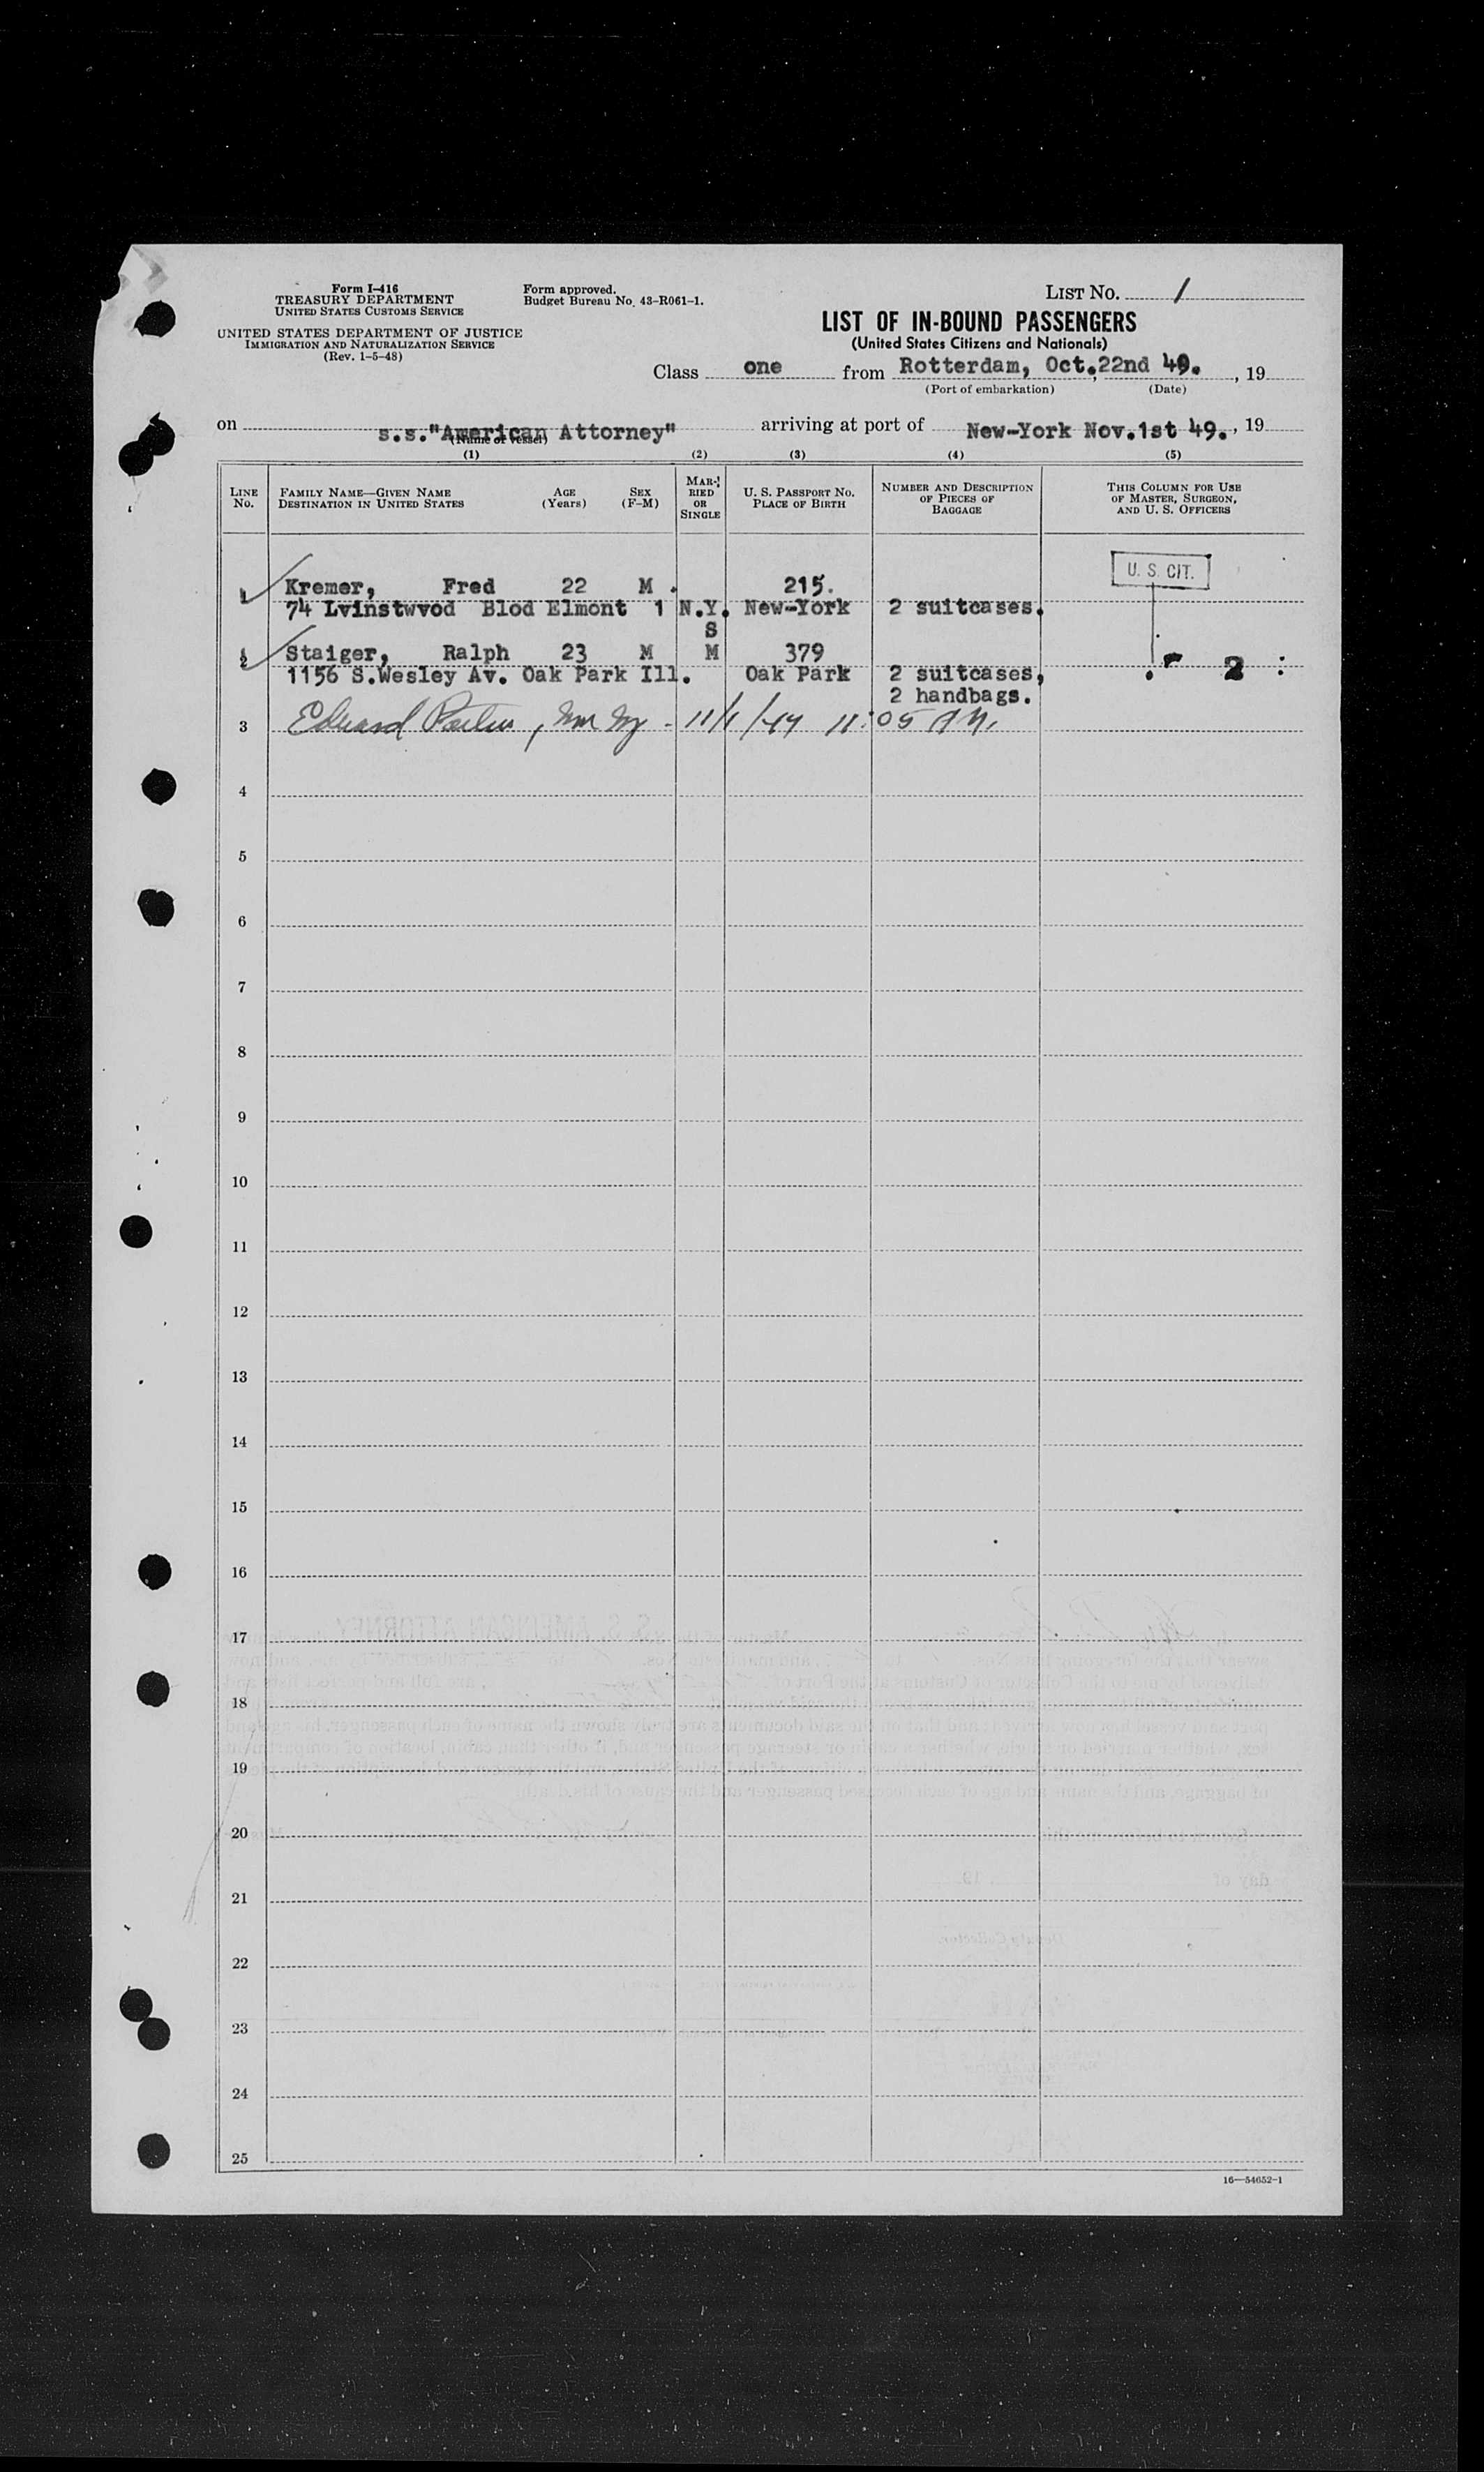 Form I-416
TREASURY DEPARTMENT
UNITED STATES CUSTOMS SERVICE
UNITED STATES DEPARTMENT OF JUSTICE
IMMIGRATION AND NATURALIZATION SERVICE
(Rev. 1-5-48)
Form approved.
Budget Bureau No. 43-R061-1.
LIST NO. 1
LIST OF IN-BOUND PASSENGERS
(United States Citizens and Nationals)
Class one from Rotterdam, Oct.22nd 49. , 19
(Port of embarkation) (Date)
on s.s."American Attorney" arriving at port of New-York Nov.1st 49. , 19
(Name of vessel)
(1) (2) (3) (4) (5)
LINE NO.
FAMILY NAME—GIVEN NAME DESTINATION IN UNITED STATES
AGE (Years)
SEX (F-M)
MARRIED OR SINGLE
U. S. PASSPORT NO. PLACE OF BIRTH
NUMBER AND DESCRIPTION OF PIECES OF BAGGAGE
THIS COLUMN FOR USE OF MASTER, SURGEON, AND U. S. OFFICERS
U. S. CIT.
1 Kremer, Fred 22 M . 215.
74 Lvinstwvod Blod Elmont 1 N.Y. New-York 2 suitcases.
S
2 Staiger, Ralph 23 M M 379
1156 S.Wesley Av. Oak Park Ill. Oak Park 2 suitcases, - 2 :
2 handbags.
3 Edward 11/1/49 11:05 AM.
4
5
6
7
8
9
10
11
12
13
14
15
16
17
18
19
20
21
22
23
24
25
16—54652-1